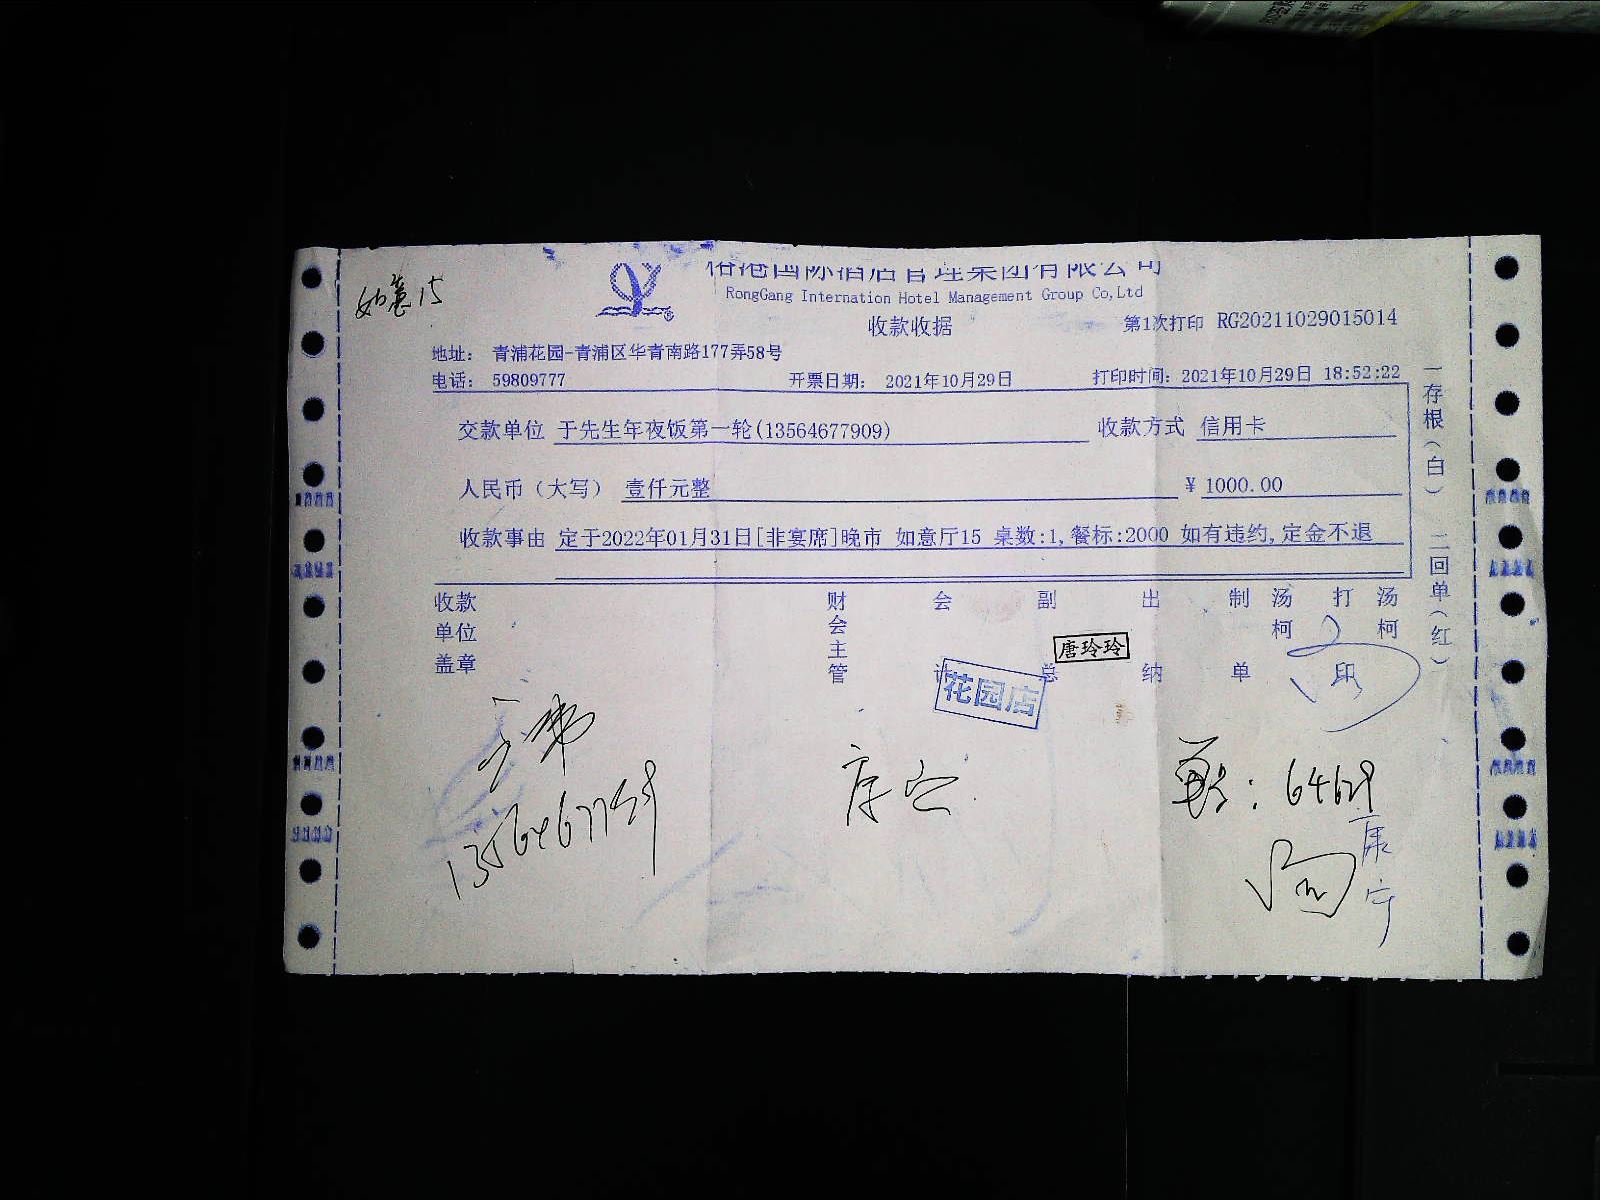 如意15
国际酒店管理集团有限公司
RongGang Internation Hotel Management Group Co,Ltd
收款收据
第1次打印 RG20211029015014
地址: 青浦花园-青浦区华青南路177弄58号
电话: 59809777 开票日期: 2021年10月29日 打印时间: 2021年10月29日 18:52:22
交款单位 于先生年夜饭第一轮(13564677909) 收款方式 信用卡
人民币(大写) 壹仟元整 ¥ 1000.00
收款事由 定于2022年01月31日[非宴席]晚市 如意厅15 桌数:1,餐标:2000 如有违约,定金不退
一存根(白) 二回单(红)
收款单位盖章 财会主管 会计 副总 出纳 制单 汤柯 打印 汤柯
唐玲玲
花园店
康宁